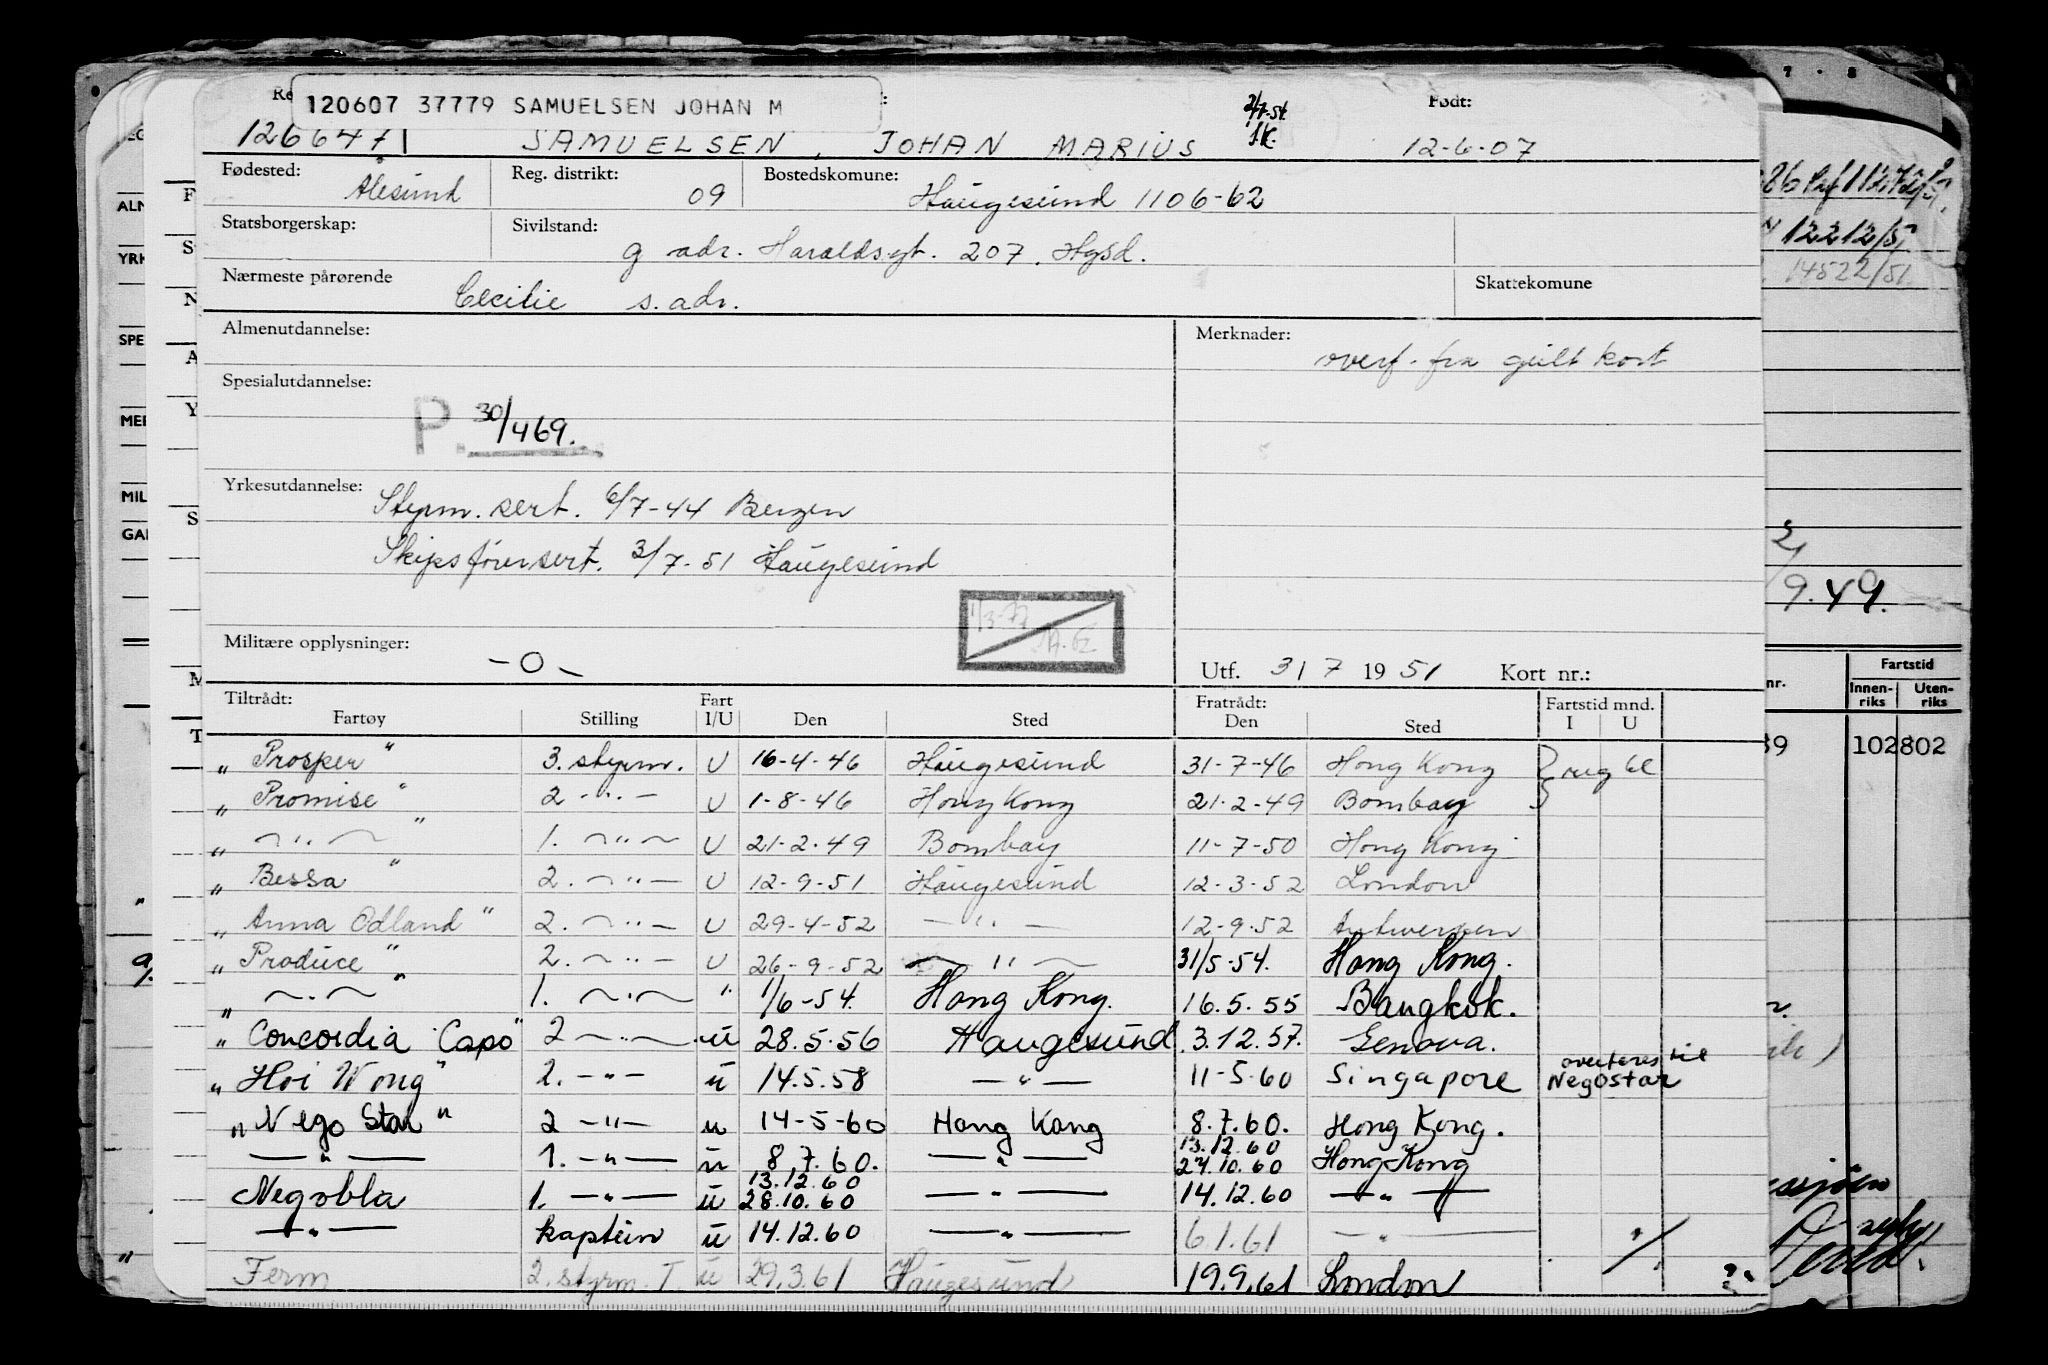 120607 37779 SAMUELSEN JOHAN M
2/7-51
Født:
126647/1 SAMUELSEN, JOHAN MARIUS S.K. 12-6-07
Fødested: Ålesund Reg. distrikt: 09 Bostedskomune: Haugesund 1106-62
Statsborgerskap: Sivilstand: g adr. Haraldsgt. 207. Hgsd.
Nærmeste pårørende Cecilie s. adr. Skattekomune
Almenutdannelse: Merknader: overf. fra gult kort
Spesialutdannelse:
P. 30/469.
Yrkesutdannelse: Styrm. sert. 6/7-44 Bergen
Skipsførersert. 3/7-51 Haugesund
Militære opplysninger: -0- Utf. 31 7 1951 Kort nr.:
Tiltrådt: Fart Fratrådt: Fartstid mnd.
Fartøy Stilling I/U Den Sted Den Sted I U
„ Prosper " 3. styrm. U 16-4-46 Haugesund 31-7-46 Hong Kong
„ Promise " 2 -"- U 1-8-46 Hong Kong 21-2-49 Bombay
„ -"- " 1. -"- U 21-2-49 Bombay 11-7-50 Hong Kong
„ Bessa " 2. -"- U 12-9-51 Haugesund 12-3-52 London
„ Anna Odland " 2. -"- U 29-4-52 -"- 12-9-52 Antwerpen
„ Produce " 2. -"- U 26-9-52 -"- 31/5-54. Hong Kong.
„ -"- " 1. -"- " 1/6-54. Hong Kong. 16.5.55 Bangkok.
„ Concordia Capo" 2 -"- u 28.5.56 Haugesund 3.12.57. Genova.
„ Hoi Wong " 2. -"- u 14.5.58 -"- 11-5-60 Singapore overføres til Negostar
„ Nego Star " 2 -"- u 14-5-60 Hong Kong 8.7.60. Hong Kong.
-"- 1. -"- u 8.7.60. -"- 13.12.60 27.10.60 Hong Kong
Negobla 1. -"- u 13.12.60 28.10.60 -"- 14.12.60 -"-
-"- kaptein u 14.12.60 -"- 6.1.61 -"-
Ferm 2. styrm. I. u 29.3.61 Haugesund 19.9.61 London
ALM
YRK
SPE
MER
MIL
GAR
12212/5
14522/51.
9.49.
nr.
Fartstid
Innen-riks Uten-riks
39 102802